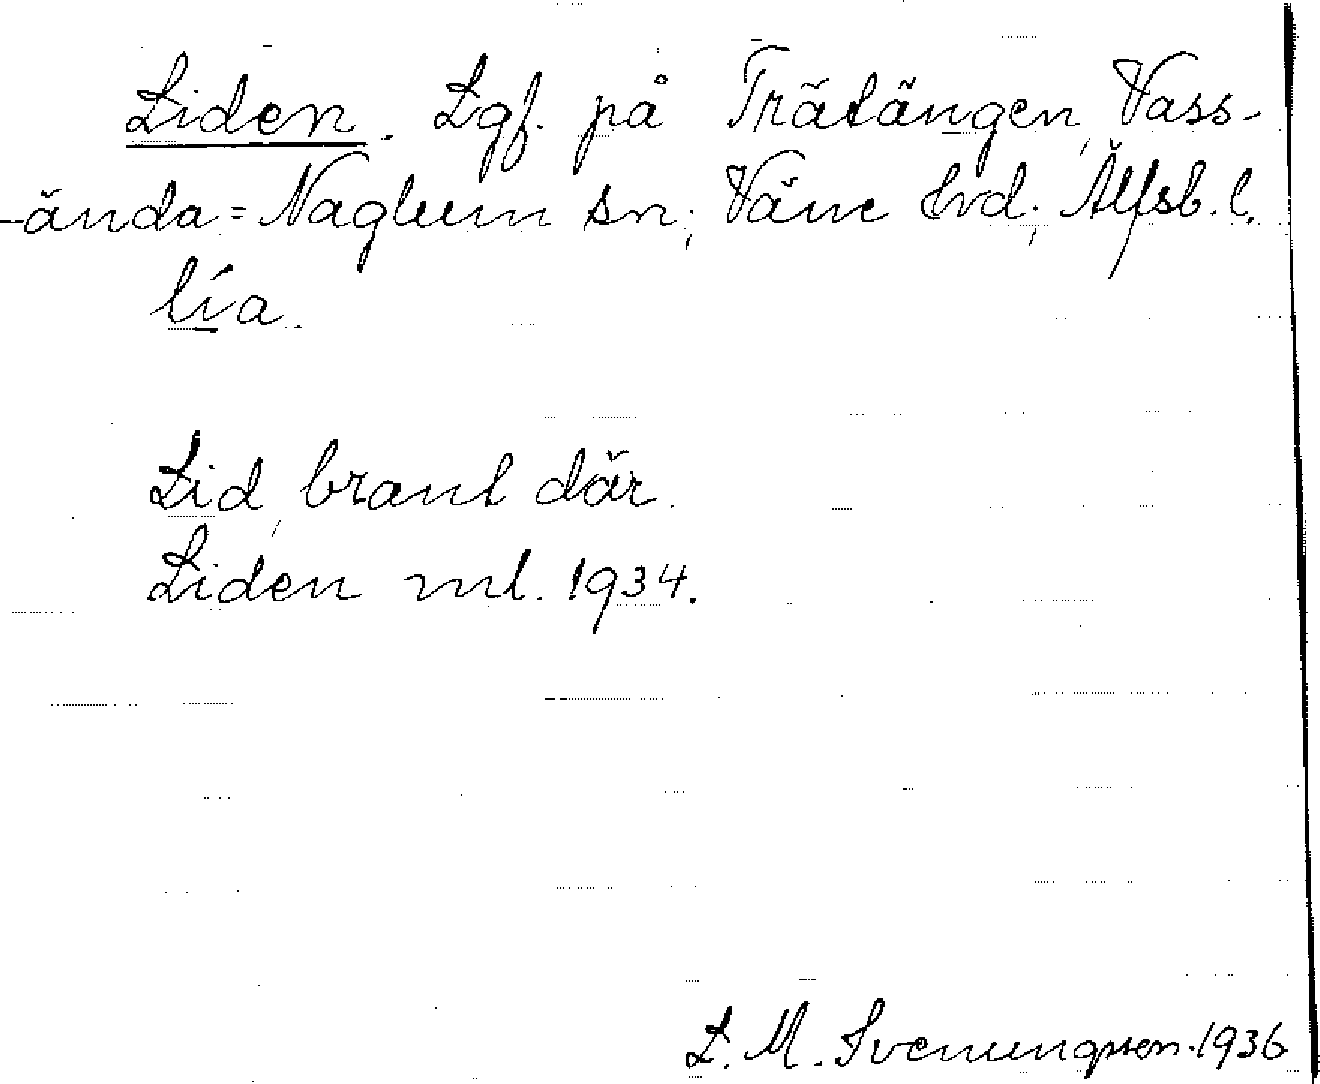 Liden. Lgf. på Trätängen, Vass-
ända=Naglum sn; Väne hrd; Älfsb. l.
lía.
Lid, brant där.
Liden ml. 1934.
L. M. Svenungsson. 1936